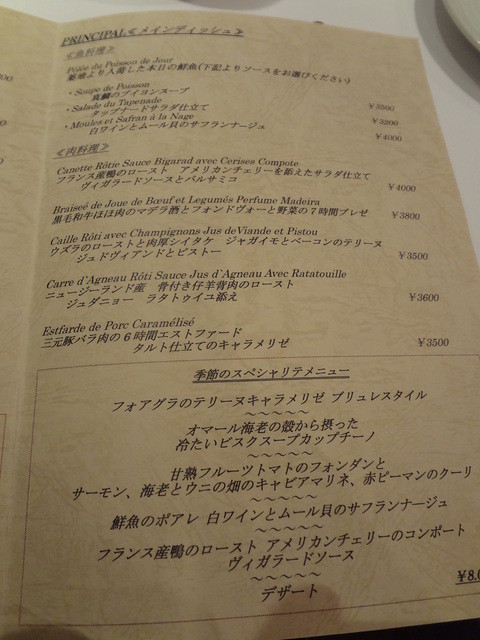 PRINCIPAL≪メインディッシュ≫
≪魚料理≫
Pôlée du Poisson de Jour
築地より入荷した本日の鮮魚(下記よりソースをお選びください)
・Soupe de Poisson
真鯛のブイヨンスープ ¥3500
・Salade du Tapenade
タップナードサラダ仕立て ¥3200
・Moules et Safran à la Nage
白ワインとムール貝のサフランナージュ ¥4000
≪肉料理≫
Canette Rôtie Sauce Bigarad avec Cerises Compote
フランス産鴨のロースト アメリカンチェリーを添えたサラダ仕立て
ヴィガラードソースとバルサミコ ¥4000
Braiseé de Joue de Bœuf et Legumés Perfume Madeira
黒毛和牛ほほ肉のマデラ酒とフォンドヴォーと野菜の7時間ブレゼ ¥3800
Caille Rôti avec Champignons Jus deViande et Pistou
ウズラのローストと肉厚シイタケ ジャガイモとベーコンのテリーヌ
ジュドヴィアンドとピストー ¥3500
Carre d`Agneau Rôti Sauce Jus d`Agneau Avec Ratatouille
ニュージーランド産 骨付き仔羊背肉のロースト
ジュダニョー ラタトゥイユ添え ¥3600
Estfarde de Porc Caramélisé
三元豚バラ肉の6時間エストファード
タルト仕立てのキャラメリゼ ¥3500
季節のスペシャリテメニュー
フォアグラのテリーヌキャラメリゼ ブリュレスタイル
~~~~~
オマール海老の殻から摂った
冷たいビスクスープカップチーノ
~~~~~
甘熟フルーツトマトのフォンダンと
サーモン、海老とウニの畑のキャビアマリネ、赤ピーマンのクーリ
~~~~~
鮮魚のポアレ 白ワインとムール貝のサフランナージュ
~~~~~
フランス産鴨のロースト アメリカンチェリーのコンポート
ヴィガラードソース
~~~~~
デザート